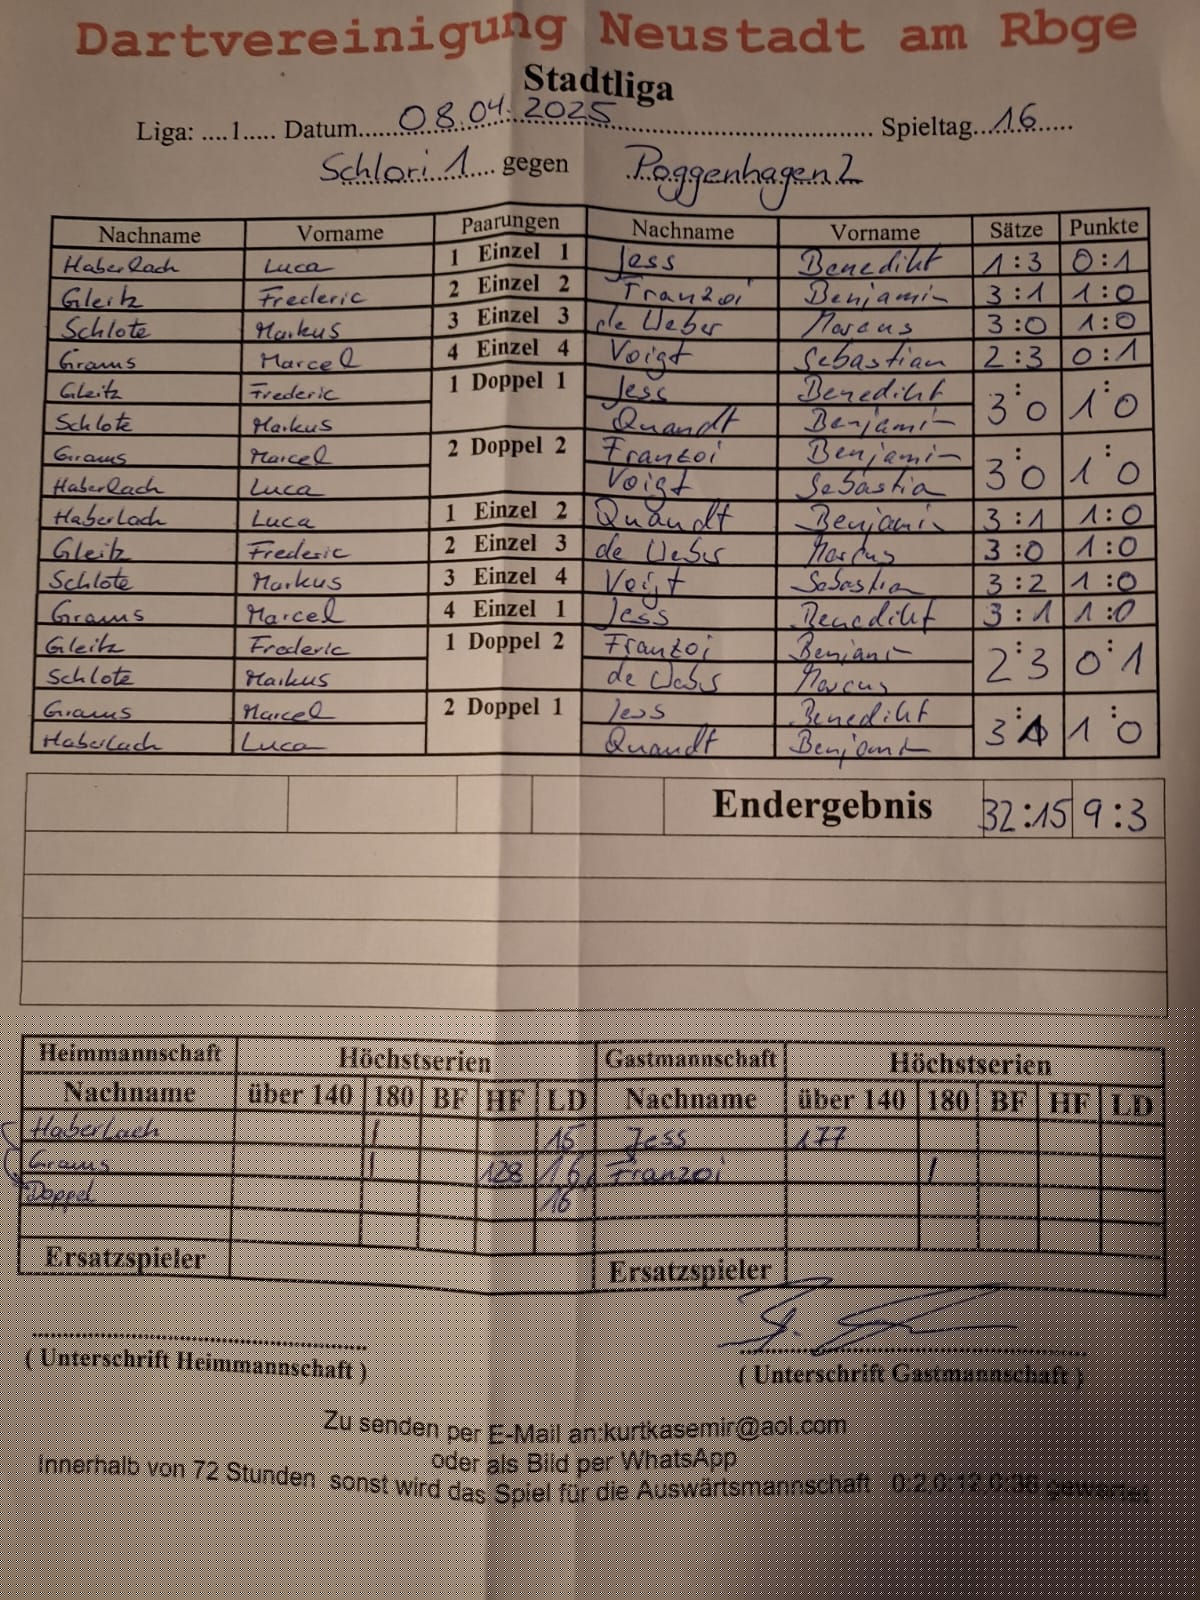 Dartvereinigung Neustadt am Rbge
Stadtliga
Liga: ....1..... Datum...08.04.2025... Spieltag..16......
Schlori 1.... gegen Poggenhagen 2
Nachname Vorname Paarungen Nachname Vorname Sätze Punkte
Haberlach Luca 1 Einzel 1 Jess Benedikt 1:3 0:1
Gleitz Frederic 2 Einzel 2 Franzoi Benjamin 3:1 1:0
Schlote Markus 3 Einzel 3 de Weber Marcus 3:0 1:0
Grams Marcel 4 Einzel 4 Voigt Sebastian 2:3 0:1
Gleitz Frederic 1 Doppel 1 Jess Benedikt 3:0 1:0
Schlote Markus Quandt Benjamin
Grams Marcel 2 Doppel 2 Franzoi Benjamin 3:0 1:0
Haberlach Luca Voigt Sebastian
Haberlach Luca 1 Einzel 2 Quandt Benjamin 3:1 1:0
Gleitz Frederic 2 Einzel 3 de Weber Marcus 3:0 1:0
Schlote Markus 3 Einzel 4 Voigt Sebastian 3:2 1:0
Grams Marcel 4 Einzel 1 Jess Benedikt 3:1 1:0
Gleitz Frederic 1 Doppel 2 Franzoi Benjamin 2:3 0:1
Schlote Markus de Weber Marcus
Grams Marcel 2 Doppel 1 Jess Benedikt 3:1 1:0
Haberlach Luca Quandt Benjamin
Endergebnis 32:15 9:3
Heimmannschaft Höchstserien Gastmannschaft Höchstserien
Nachname über 140 180 BF HF LD Nachname über 140 180 BF HF LD
Haberlach 1 15 Jess 177
Grams 1 128 16, Franzoi 1
Doppel 16
Ersatzspieler Ersatzspieler
( Unterschrift Heimmannschaft ) ( Unterschrift Gastmannschaft )
Zu senden per E-Mail an:kurtkasemir@aol.com
oder als Bild per WhatsApp
Innerhalb von 72 Stunden sonst wird das Spiel für die Auswärtsmannschaft 0:2,0:12,0:36 gewertet